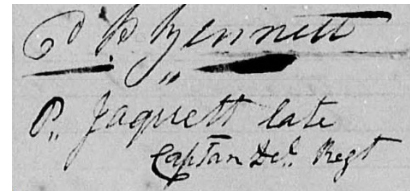 P B Bennett
P,, Jaquett late
Captan Del. Regt